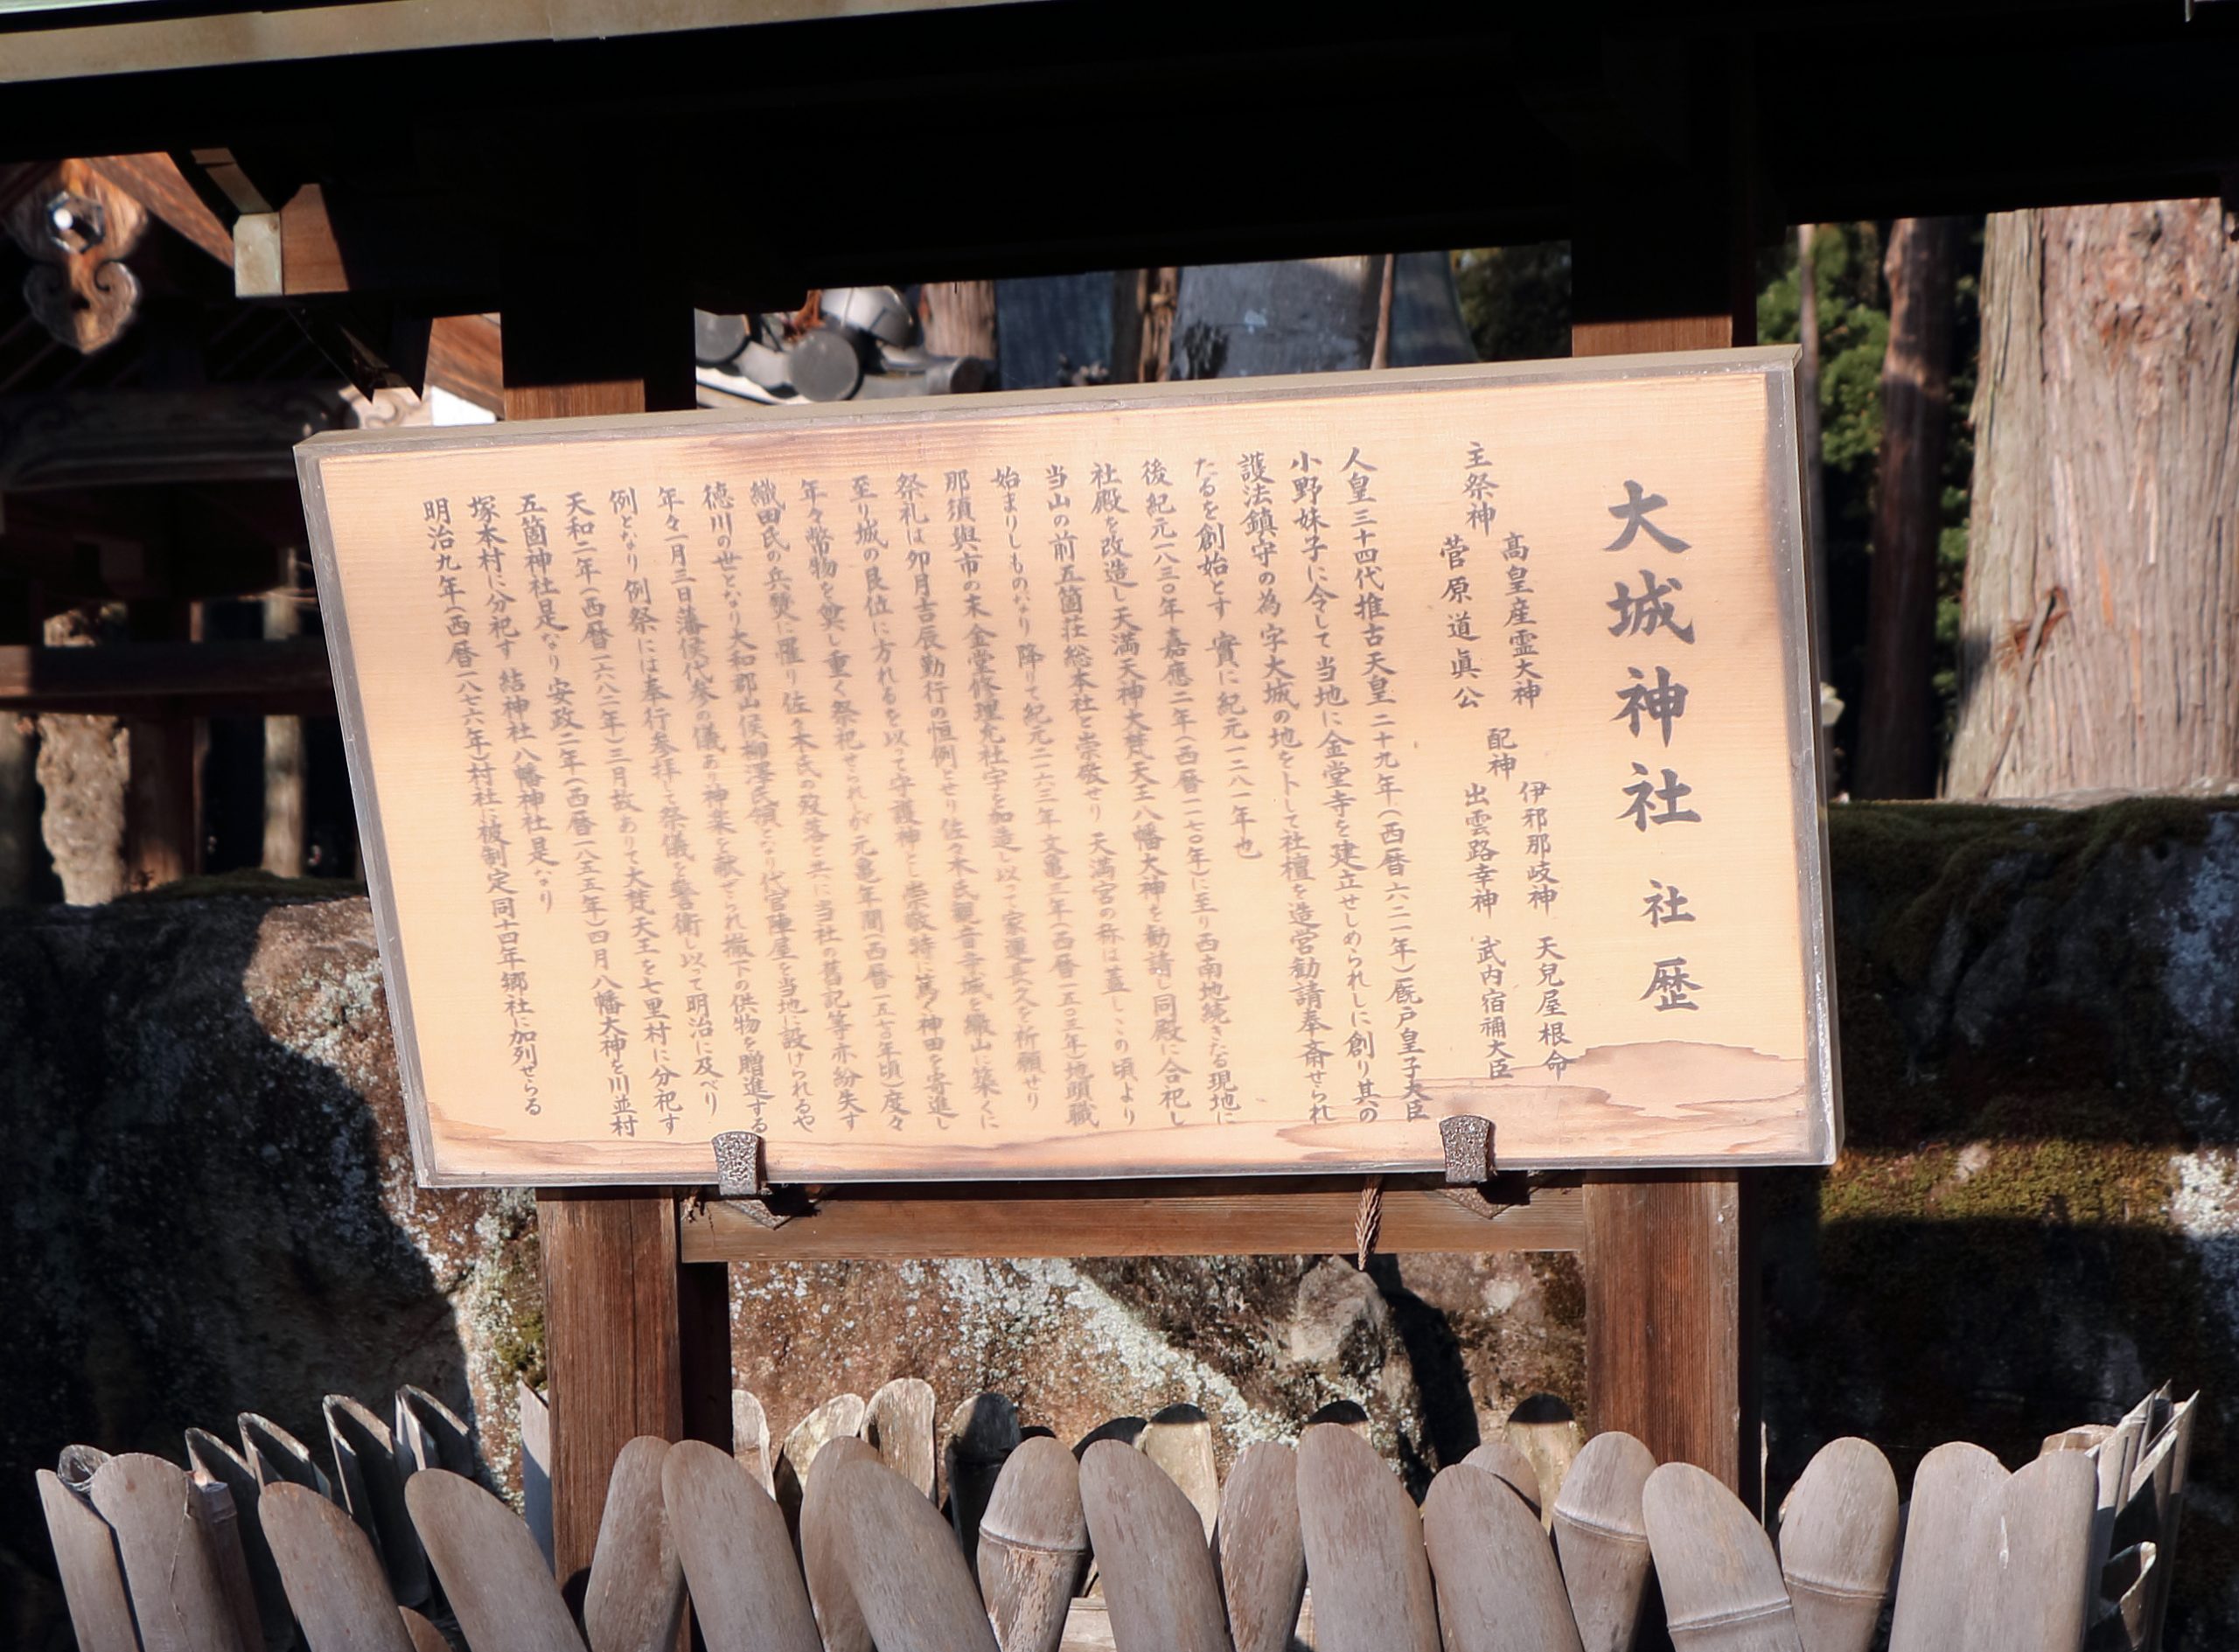 大城神社 社歴
主祭神 高皇産霊大神
菅原道眞公
配神 伊邪那岐神 天兒屋根命
出雲路幸神 武内宿禰大臣
人皇三十四代推古天皇二十九年(西暦六二一年)厩戸皇子大臣
小野妹子に令して当地に金堂寺を建立せしめられしに創り其の
護法鎮守の為字大城の地を卜して社檀を造営勧請奉斎せられ
たるを創始とす 實に紀元一二八一年也
後紀元一八三〇年嘉應二年(西暦一一七〇年)に至り西南地続きなる現地に
社殿を改造し天満天神大梵天王八幡大神を勧請し同殿に合祀し
当山の前五箇荘総本社と崇敬せり 天満宮の称は蓋しこの頃より
始まりしものなり 降りて紀元二一六三年文亀三年(西暦一五〇三年)地頭職
那須與市の末金堂修理亮社宇を加造し以て家運長久を祈願せり
祭礼は卯月吉辰勤行の恒例とせり佐々木氏観音寺城を繖山に築くに
至り城の艮位に方れるを以て守護神とし崇敬特に篤く神田を寄進し
年々幣物を奠し重く祭祀せられしが 元亀年間(西暦一五七〇年頃)度々
織田氏の兵燹に罹り佐々木氏の没落と共に当社の舊記等亦紛失す
徳川の世となり大和郡山侯柳澤氏領となり代官陣屋を当地に設けられるや
年々一月三日藩侯代参の儀あり神楽を献ぜられ撤下の供物を贈進する
例となり 例祭には奉行参拝して祭儀を警衛し以って明治に及べり
天和二年(西暦一六八二年)三月故ありて大梵天王を七里村に分祀す
五箇神社是なり安政二年(西暦一八五五年)四月八幡大神を川並村
塚本村に分祀す 結神社八幡神社是なり
明治九年(西暦一八七六年)村社に被制定同十四年郷社に加列せらる